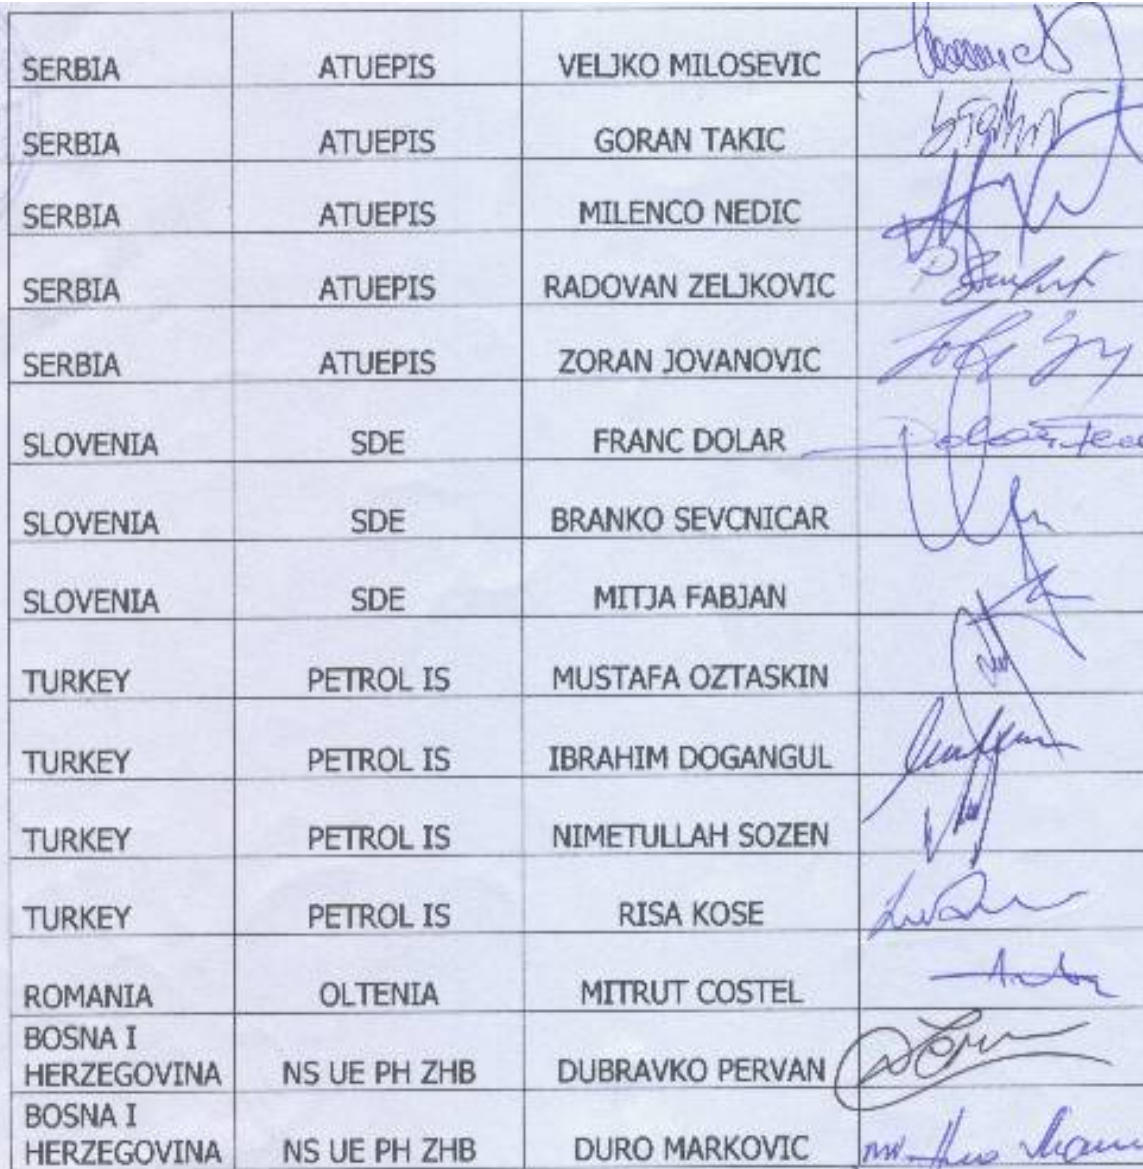 SERBIA ATUEPIS VELJKO MILOSEVIC
SERBIA ATUEPIS GORAN TAKIC
SERBIA ATUEPIS MILENCO NEDIC
SERBIA ATUEPIS RADOVAN ZELJKOVIC
SERBIA ATUEPIS ZORAN JOVANOVIC
SLOVENIA SDE FRANC DOLAR
SLOVENIA SDE BRANKO SEVCNICAR
SLOVENIA SDE MITJA FABJAN
TURKEY PETROL IS MUSTAFA OZTASKIN
TURKEY PETROL IS IBRAHIM DOGANGUL
TURKEY PETROL IS NIMETULLAH SOZEN
TURKEY PETROL IS RISA KOSE
ROMANIA OLTENIA MITRUT COSTEL
BOSNA I
HERZEGOVINA NS UE PH ZHB DUBRAVKO PERVAN
BOSNA I
HERZEGOVINA NS UE PH ZHB DURO MARKOVIC